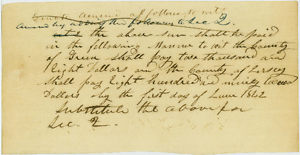 Amend by adding the following to Sec 2.
the above sum shall be paid
in the following Manner to wit the County
of Green Shall pay two thousand and
Eight Dollars and the County of Jersey
Shall pay Eight hundred and ninety two
Dollars by the first day of June 1842
Substitute the above for
Sec. 2